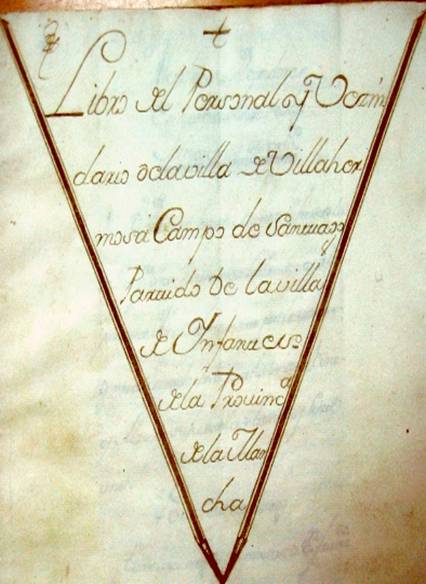 Libro del Personal y Vezin
dario de la villa de Villaher
mosa Campo de Santiago
y
Partido De la villa
de Infantes
de la Provinca
de la Man
cha